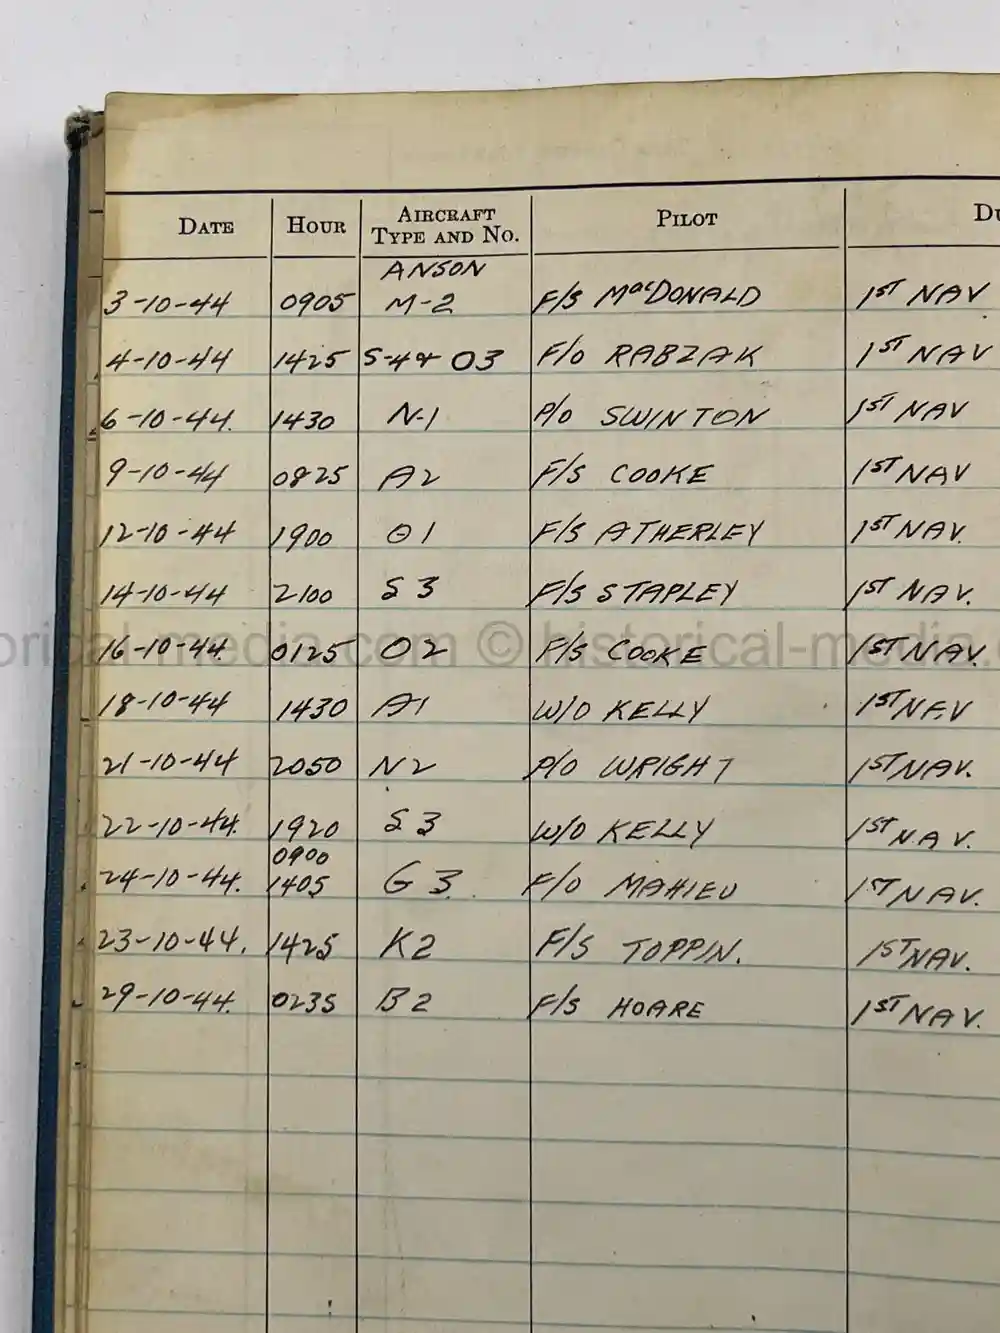 DATE HOUR AIRCRAFT TYPE AND NO. PILOT
ANSON
3-10-44 0905 M-2 F/S MacDONALD 1ST NAV
4-10-44 1425 S-4 & O3 F/O RABZAK 1ST NAV
6-10-44. 1430 N-1 P/O SWINTON 1ST NAV
9-10-44 0825 A2 F/S COOKE 1ST NAV
12-10-44 1900 O1 F/S ATHERLEY 1ST NAV.
14-10-44 2100 S3 F/S STAPLEY 1ST NAV.
historical-media.com © historical-media.
16-10-44. 0125 O2 F/S COOKE 1ST NAV.
18-10-44 1430 A1 W/O KELLY 1ST NAV
21-10-44 2050 N2 P/O WRIGHT 1ST NAV.
22-10-44. 1920 S3 W/O KELLY 1ST NAV.
0900
24-10-44. 1405 G3. F/O MAHIEU 1ST NAV.
23-10-44. 1425 K2 F/S TOPPIN. 1ST NAV.
29-10-44. 0235 B2 F/S HOARE 1ST NAV.